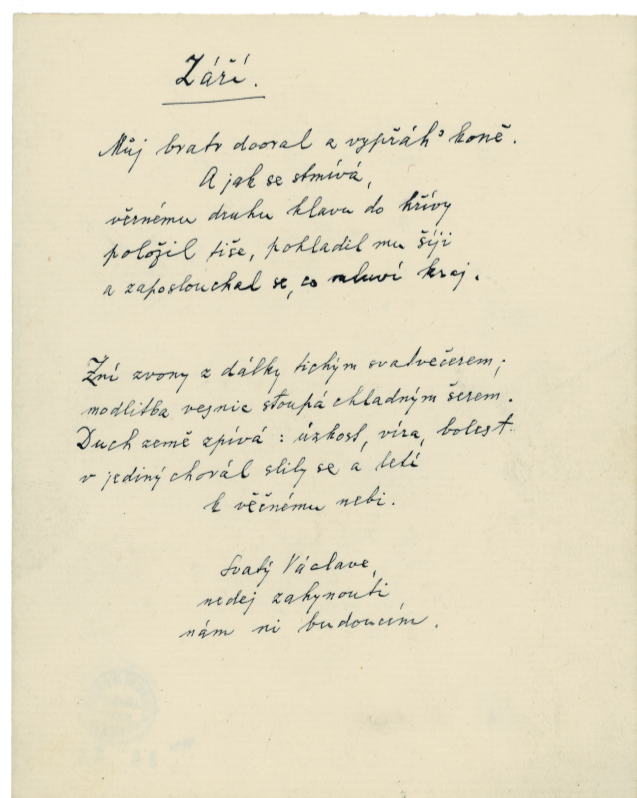 Září.
Můj bratr dooral a vypřáh' koně.
A jak se stmívá,
věrnému druhu hlavu do hřívy
položil tiše, pohladil mu šíji
a zaposlouchal se, co mluví kraj.
Zní zvony z dálky tichým svatvečerem;
modlitba vesnic stoupá chladným šerem.
Duch země zpívá: úzkost, víra, bolest
v jediný chorál slily se a letí
k věčnému nebi.
Svatý Václave,
nedej zahynouti
nám ni budoucím.